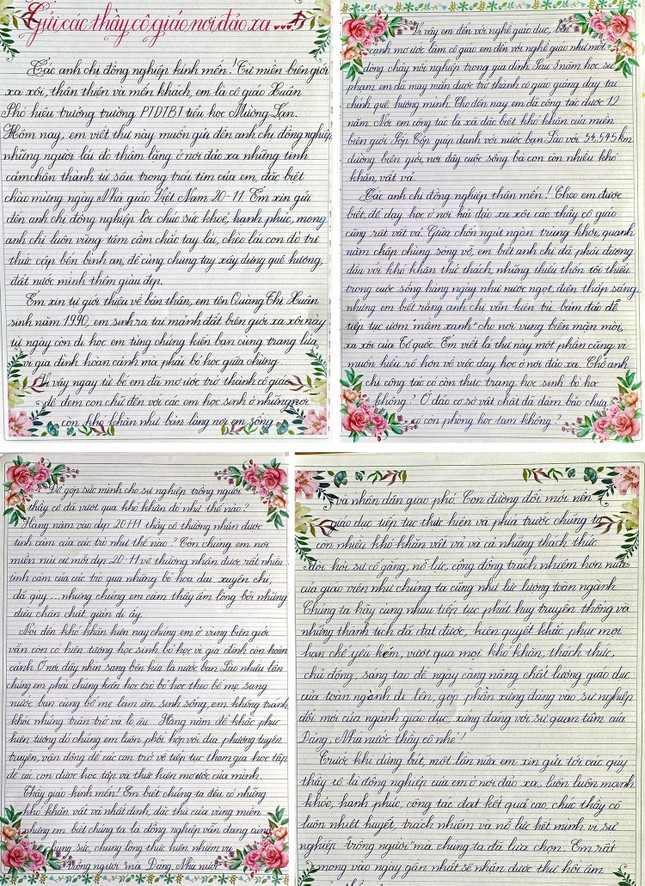 Gửi các thầy cô giáo nơi đảo xa
Các anh chị đồng nghiệp kính mến! Từ miền biên giới
xa xôi, thân thiện và mến khách, em là cô giáo Xuân
Phó hiệu trưởng trường PTDTBT tiểu học Mường Lạn.
Hôm nay, em viết thư này muốn gửi đến anh chị đồng nghiệp
những người lái đò thầm lặng ở nơi đảo xa những tình
cảm chân thành từ sâu trong trái tim của em, đặc biệt
chào mừng ngày Nhà giáo Việt Nam 20-11. Em xin gửi
đến anh chị đồng nghiệp lời chúc sức khoẻ, hạnh phúc, mong
anh chị luôn vững tâm cầm chắc tay lái, chèo lái con đò tri
thức cập bến bình an, để cùng chung tay xây dựng quê hương,
đất nước mình thêm giàu đẹp.
Em xin tự giới thiệu về bản thân, em tên Quàng Thị Xuân
sinh năm 1990, em sinh ra tại mảnh đất biên giới xa xôi này
từ ngày còn đi học em từng chứng kiến bạn cùng trang lứa,
vì gia đình hoàn cảnh mà phải bỏ học giữa chừng.
Vì vậy ngay từ bé em đã mơ ước trở thành cô giáo
để đem con chữ đến với các em học sinh ở những nơi
còn khó khăn như bản làng nơi em sống.
Vì vậy em đến với nghề giáo dục, bởi
cạnh mơ ước làm cô giáo em đến với nghề giáo như một
dòng chảy nối nghiệp trong gia đình. Sau 3 năm học sư
phạm em đã may mắn được trở thành cô giáo giảng dạy tại
chính quê hương mình. Cho đến nay em đã công tác được 12
năm. Nơi em công tác là xã đặc biệt khó khăn của miền
biên giới Sốp Cộp giáp danh với nước bạn Lào với 54,545km
đường biên giới, nơi đây cuộc sống bà con còn nhiều khó
khăn, vất vả.
Các anh chị đồng nghiệp thân mến! Theo em được
biết, để dạy học ở nơi hải đảo xa xôi các thầy cô giáo
cũng rất vất vả. Giữa chốn ngút ngàn trùng khơi, quanh
năm chập chùng sóng vỗ, em biết anh chị đã phải đương
đầu với khó khăn thử thách, những thiếu thốn tối thiểu
trong cuộc sống hàng ngày như nước ngọt, điện thắp sáng..
nhưng em biết rằng anh chị vẫn kiên trì bám đảo để
tiếp tục ươm "mầm xanh" cho nơi vùng biển mặn mòi,
xa xôi của Tổ quốc. Em viết lá thư này một phần cũng vì
muốn hiểu rõ hơn về việc dạy học ở nơi đảo xa. Chỗ anh
chị công tác có còn thực trạng học sinh bỏ học
không? Ở đảo cơ sở vật chất đã đảm bảo chưa,
có còn phòng học tạm không?
Để góp sức mình cho sự nghiệp trồng người
thầy cô đã vượt qua khó khăn đó như thế nào?
Hàng năm vào dịp 20-11 thầy cô thường nhận được
tình cảm của các trò như thế nào? Còn chúng em nơi
miền núi cứ mỗi dịp 20-11 về thường nhận được rất nhiều
tình cảm của các trò qua những bó hoa dại xuyến chi,
dã quỳ... nhưng chúng em cảm thấy ấm lòng bởi những
điều chân chất, giản dị ấy.
Nói đến khó khăn hiện nay chúng em ở vùng biên giới
vẫn còn có hiện tượng học sinh bỏ học vì gia đình còn hoàn
cảnh. Ở nơi đây nhìn sang bên kia là nước bạn Lào nhiều lần
chúng em phải chứng kiến học trò bỏ học theo bố mẹ sang
nước bạn cùng bố mẹ làm ăn, sinh sống, em không tránh
khỏi những trăn trở và lo âu. Hàng năm để khắc phục
hiện tượng đó chúng em luôn phối hợp với địa phương tuyên
truyền, vận động để các con trở về tiếp tục tham gia học tập
để các con được học tập và thực hiện mơ ước của mình.
Thầy giáo kính mến! Em biết chúng ta đều có những
khó khăn vất vả nhất định, đặc thù của vùng miền
nhưng em biết chúng ta là đồng nghiệp vẫn đang cùng
chung sức, chung lòng thực hiện nhiệm vụ
"trồng người" mà Đảng, Nhà nước
và nhân dân giao phó. Con đường đổi mới nền
giáo dục tiếp tục thực hiện và phía trước chúng ta
còn nhiều khó khăn vất vả và cả những thách thức
đòi hỏi sự cố gắng, nỗ lực, cộng đồng trách nhiệm hơn nữa
của giáo viên như chúng ta cũng như lực lượng toàn ngành.
Chúng ta hãy cùng nhau tiếp tục phát huy truyền thống và
những thành tích đã đạt được, kiên quyết khắc phục mọi
hạn chế yếu kém, vượt qua mọi khó khăn, thách thức,
chủ động, sáng tạo để ngày càng nâng chất lượng giáo dục
của toàn ngành đi lên, góp phần xứng đáng vào sự nghiệp
đổi mới của ngành giáo dục, xứng đáng với sự quan tâm của
Đảng, Nhà nước thầy cô nhé!
Trước khi dừng bút, một lần nữa em xin gửi tới các quý
thầy cô là đồng nghiệp của em ở nơi đảo xa, luôn luôn mạnh
khoẻ, hạnh phúc, công tác đạt kết quả cao, chúc thầy cô
luôn nhiệt huyết, trách nhiệm và nỗ lực hết mình vì sự
nghiệp trồng người mà chúng ta đã lựa chọn. Em rất
mong vào ngày gần nhất sẽ nhận được thư hồi âm